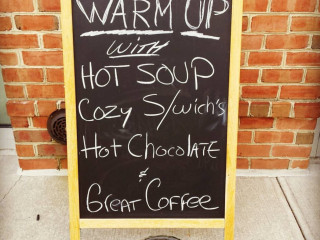 WARM UP
with
HOT SOUP
Cozy S/wich's
Hot Chocolate
&
Great Coffee